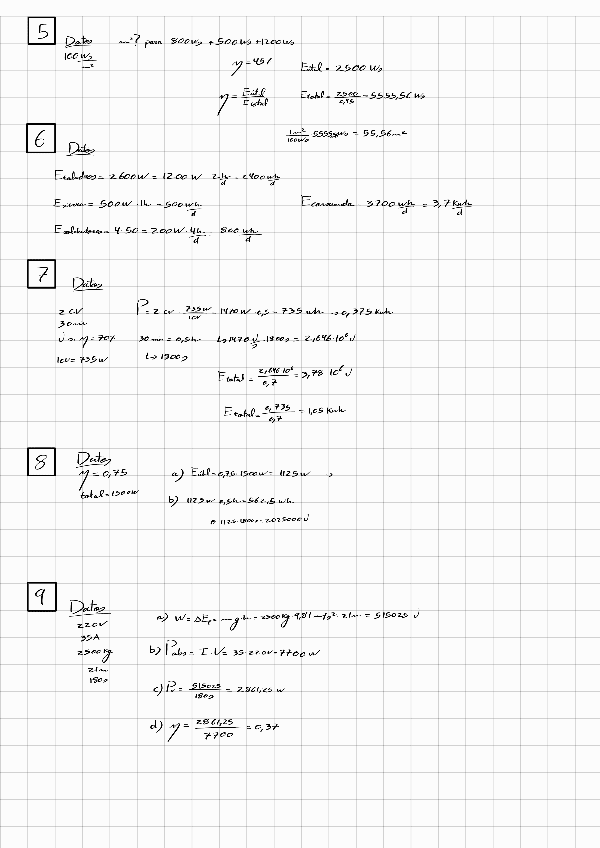 5
Datos m²? para 800Ws + 500Ws + 1200Ws
100 Ws/m²
η = 45%
Eútil = 2500 Ws
η = Eútil/Etotal
Etotal = 2500/0,45 = 5555,56 Ws
1m²/100Ws · 5555,56Ws = 55,56m²
6
Datos
= 2600W = 1200W · 2h/d = 2400 wh/d
= 500W · 1h = 500 wh/d
Econsumida 3700 wh/d = 3,7 Kwh/d
= 4·50 = 200W · 4h/d = 800 wh/d
7
Datos
2 CV
30 min
η = 70%
1CV = 735W
P = 2 CV · 735W/1CV = 1470W · 0,5 = 735 wh → 0,375 Kwh
30 min = 0,5h
↳ 1800s
↳ 1470 J/s · 1800s = 2,646·10⁶ J
Etotal = 2,646·10⁶/0,7 = 3,78·10⁶ J
Etotal = 0,735/0,7 = 1,05 Kwh
8
Datos
η = 0,75
total = 1500W
a) Eútil = 0,75·1500W = 1125W
b) 1125W · 0,5h = 562,5 wh
o 1125·1800s = 2025000J
9
Datos
220V
35A
2500kg
21m
180s
a) W = ΔEp = m·g·h = 2500kg · 9,81 m/s² · 21m = 515025 J
b) Pabs = I·V = 35·220V = 7700W
c) Pu = 515025/180s = 2861,25 W
d) η = 2861,25/7700 = 0,37